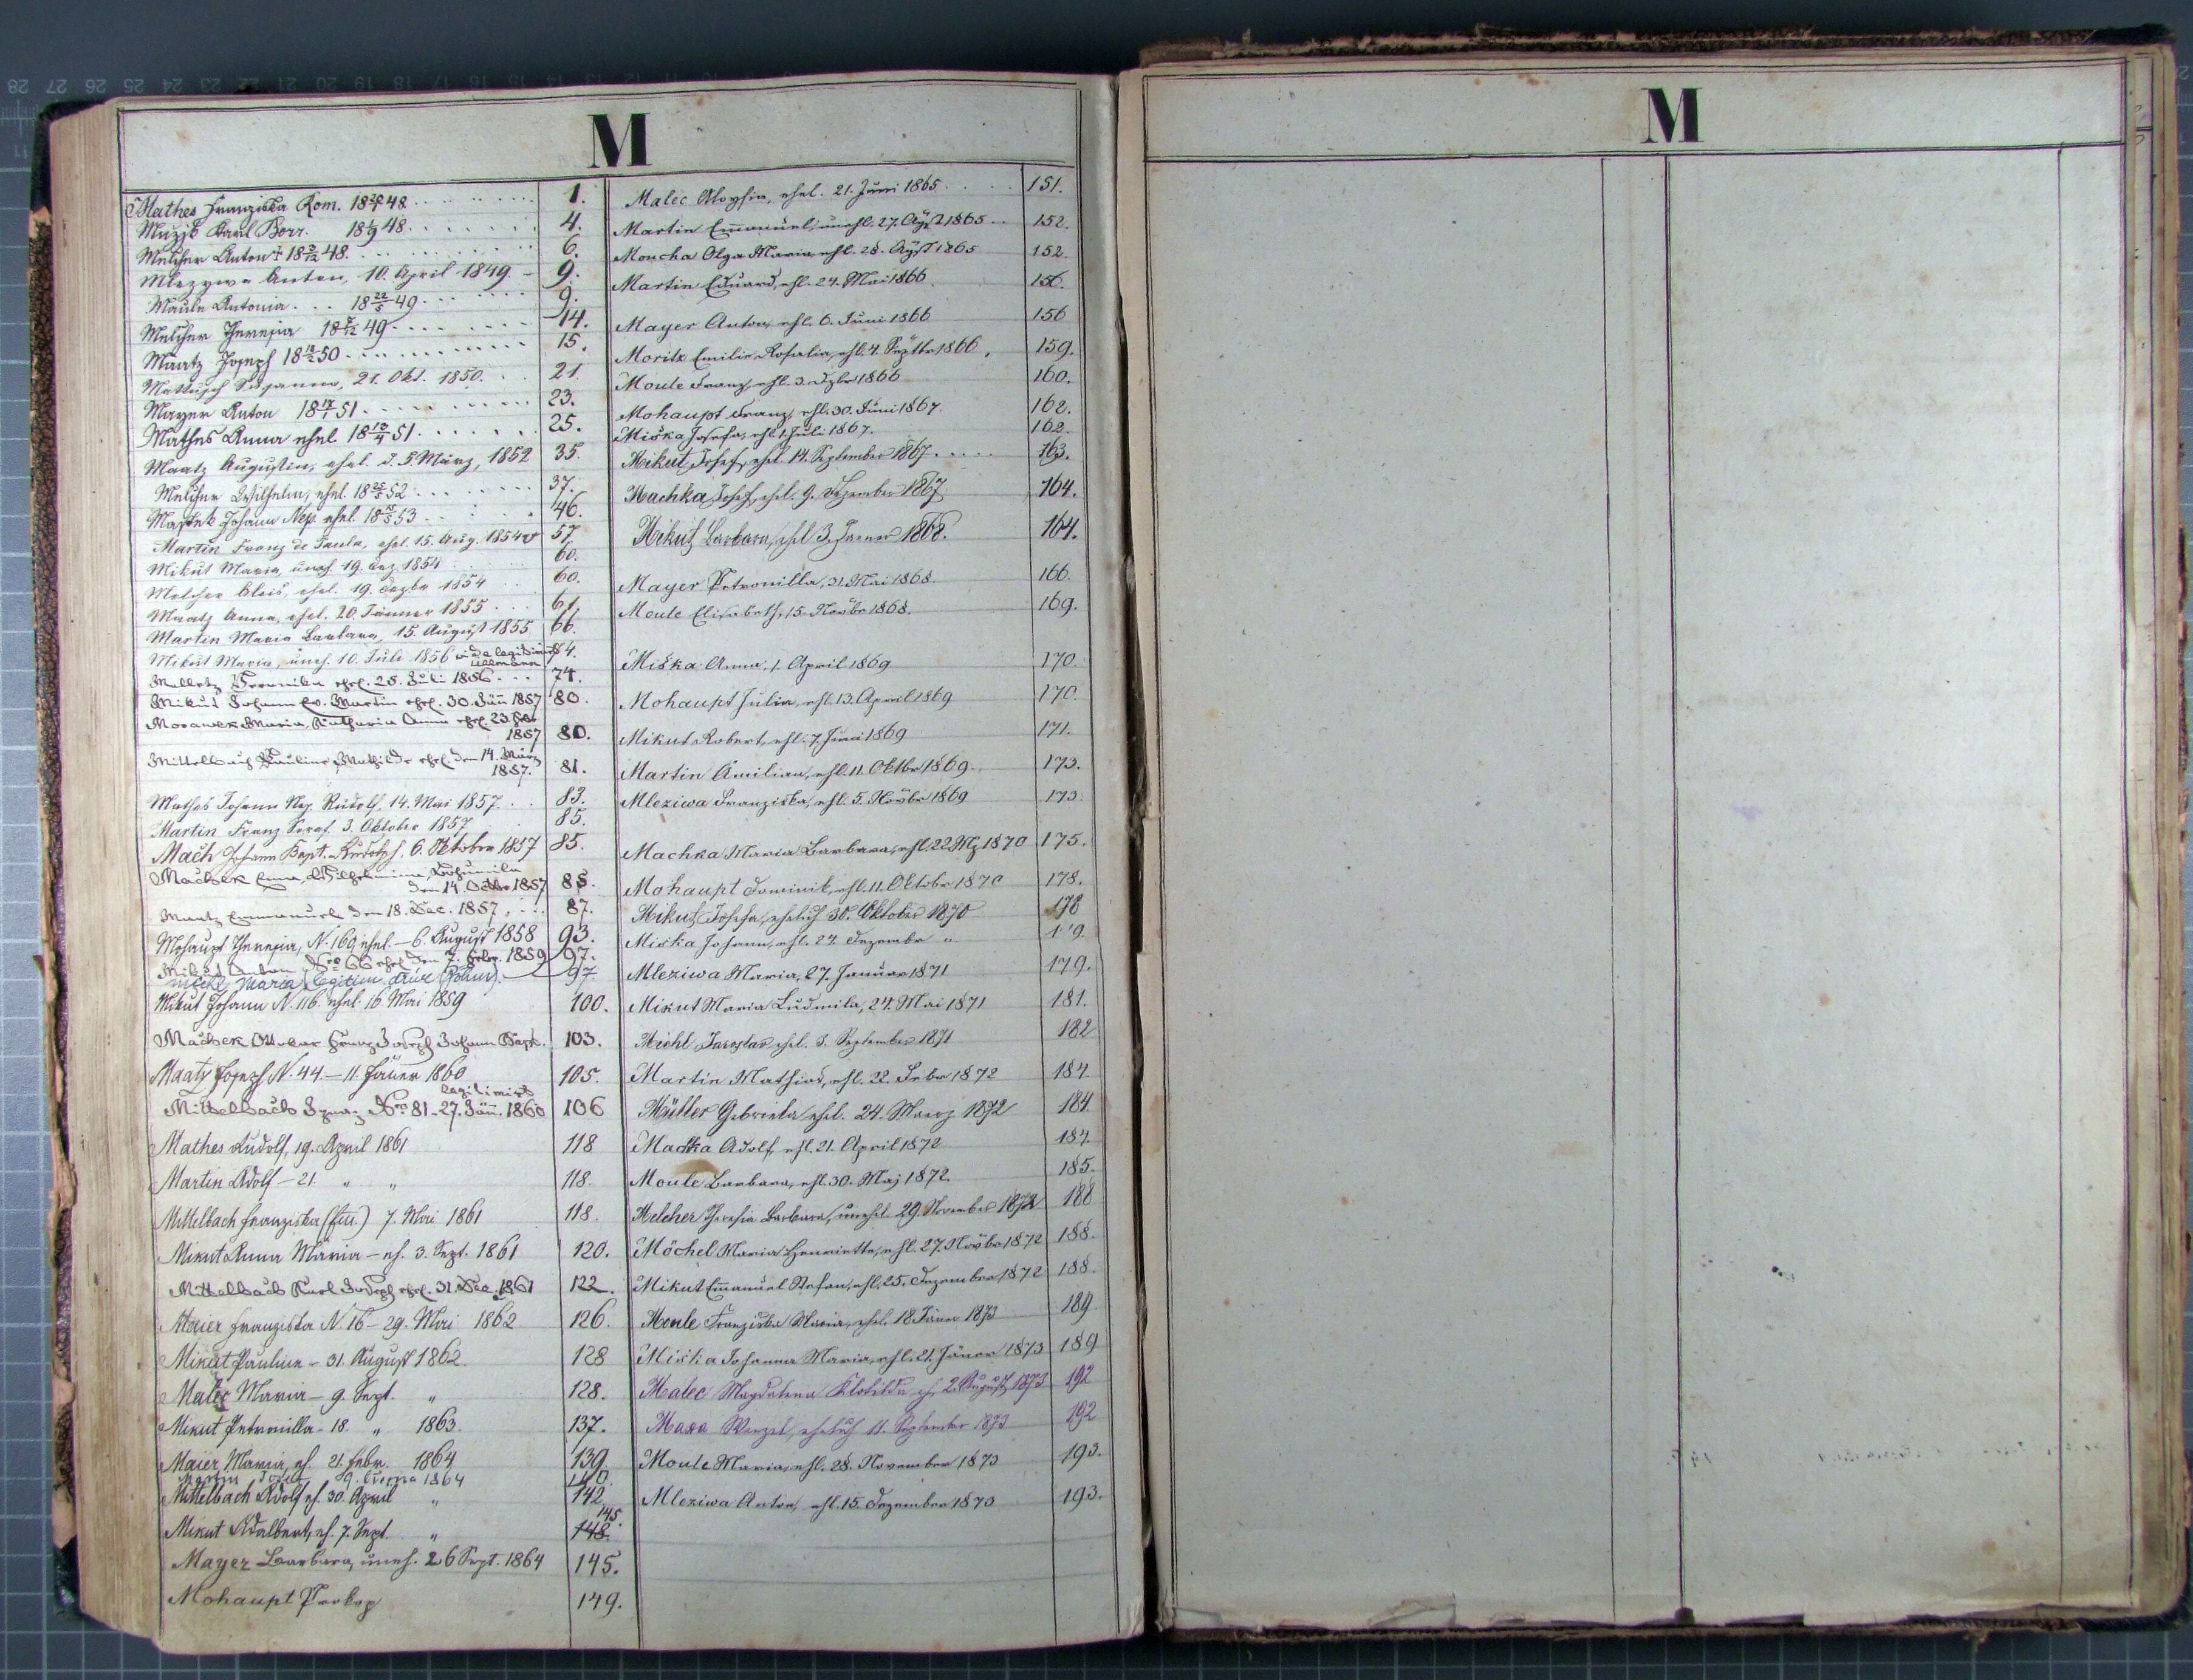 M
Mathes Franziska Rom. 18 20/1 48 1.
Muzzik Karl Borr. 18 1/9 48 4.
Melcher Anton + 18 2/12 48. 6.
Mlezywa Anton, 10. April 1849 - 9.
Maule Antonia 18 22/5 49 9.
Melcher Theresia 18 7/12 49 14.
Maatz Joseph 18 18/2 50 15.
Mattusch Susanna, 21. Okt. 1850. 21.
Mayer Anton 18 17/1 51 23.
Mathes Anna ehel. 18 13/4 51 25.
Maatz Augustin, ehel. d. 5 März, 1852 35.
Melcher Wilhelm, ehel. 18 25/5 52 37.
Johann Nep. ehel. 46.
Martin Franz de Paula, ehel. 15. Aug. 1854 57.
Mikut Maria, uneh. 19. 1854 60.
Melcher Alois, ehel. 19. Dezbr 1854 60.
Maatz Anna, ehel. 20. Jänner 1855 61.
Martin Maria Barbara, 15. August 1855 66.
Mikut Maria, uneh. 10. Juli 1856 vide legitimirt Ullmann 74.
Veronika ehel. 25. Juli 1856 74.
Mikut Johann Ev. Martin ehel. 30. Jän 1857 80.
Morawek Maria, Katharia Anna ehel. 23. Febr
1857 80.
Mittelbach Pauline Mathilde ehel. den 14. März
1857. 81.
Mathes Johann Nep. Rudolf, 14. Mai 1857 83.
Martin Franz Seraf. 3. Oktober 1857 85.
Mach Johann Bapt. Rudolph. 6. Oktober 1857 85.
Machek Emma, Wilhelmina, Bohumila
den 14. Octbr 1857 85.
Maatz Emmanuel den 18. Dec. 1857 87.
Mohaupt Theresia, N. 160 ehel. - 6. August 1858 93.
Mikut Anton Nro 66 ehel den 7. Febr. 1859 97.
Maria (legitim. 97
Mikut Johann N. 116 ehel. 16 Mai 1859 100.
Machek Ottokar Franz Joseph Johann Bapt. 103.
Maatz Joseph N. 44 - 11. Jäner 1860 105.
legitimirt
Mittelbach Ignaz Nro 81 - 27. Jän. 1860 106
Mathes Rudolf, 19. April 1861 118
Martin Adolf - 21. " " 118.
Mittelbach Franziska 7. Mai 1861 118.
Mikut Anna Maria - eh. 3. Sept. 1861 120.
Mittelbach Karl Joseph ehel. 31. Dec. 1861 122.
Maier Franziska N 16 - 29. Mai 1862 126.
Mikut Paulina - 31. August 1862. 128
Malec Maria - 9. Sept. " 128.
Mikut Petronilla - 18. " 1863. 137.
Maier, Maria, eh. 21. Febr. 1864 139
Martin Josef 9. 1864 140.
Mittelbach Adolf eh. 30. April " 142
Mikut Adalbert, eh. 7. Sept. " 148. 145.
Mayer Barbara, uneh. 26 Sept. 1864 145.
Mohaupt Prokop 149.
Malec Aloysia, ehel. 21. Juni 1865 151.
Martin Emanuel, unehl. 27. Augst 1865 152.
Moucha Olga Maria, ehl. 28. Augst 1865 152.
Martin Eduard, ehl. 24. Mai 1866. 156.
Mayer Anton, ehl. 6. Juni 1866 156
Moritz Emilie Rosalia, ehl. 4. Septbr 1866. 159.
Moule Franz, ehl. 3. Dzbr 1866 160.
Mohaupt Franz, ehl. 30. Juni 1867. 162.
Miška Josefa, ehl. 1. Juli 1867. 162.
Mikut Josef, ehel. 14. September 1867 163.
Machka Josef, ehel. 9. Dezember 1867 164.
Mikut Barbara, ehel 3. Jänner 1868. 164.
Mayer Petronilla, 31. Mai 1868. 166.
Moule Elisabeth, 15. Novbr 1868. 169.
Miška Anna, 1. April 1869 170
Mohaupt Julia, ehl. 13. April 1869 170.
Mikut Robert, ehl. 7. Juni 1869 171.
Martin Ämilian, ehl. 11. Oktbr 1869. 173.
Mleziwa Franziska, ehl. 5. Novbr 1869 173.
Machka Maria Barbara, ehl. 22 Mz 1870 175.
Mohaupt Dominik, ehl. 11. Oktobr 1870 178.
Mikut Josefa, ehelich 30. Oktober 1870 178
Miška Johann, ehl. 24. Dezembr "
Mleziwa Maria, 27. Januar 1871 179.
Mikut Maria Ludmila, 24. Mai 1871 181.
Michl Jaroslav ehel. 8. September 1871 182
Martin Mathias, ehl. 22. Febr 1872 184
Müller Gabriela ehel. 24. Maerz 1872 184.
Machka Adolf, ehl. 21. April 1872 184.
Moule Barbara, ehl. 30. Maj 1872. 185.
Melcher Theresia Barbara, unehel. 29. November 1872 188
Möchel Maria Henriette, ehl. 27. Novbr 1872 188.
Mikut Emanuel Stefan, ehl. 25. Dezember 1872 188.
Moule Franziska Maria, ehel. 18. Jäner 1873 189
Miška Johanna Maria, ehl. 21. Jäner 1873 189
Malec Magdalena Klotilde eh. 2. August 1873 192
Maxa Wenzel, ehelich 11. September 1873 192
Moule Maria, ehl. 28. November 1873 193.
Mleziwa Anton, ehl. 15. Dezember 1873 193.
M